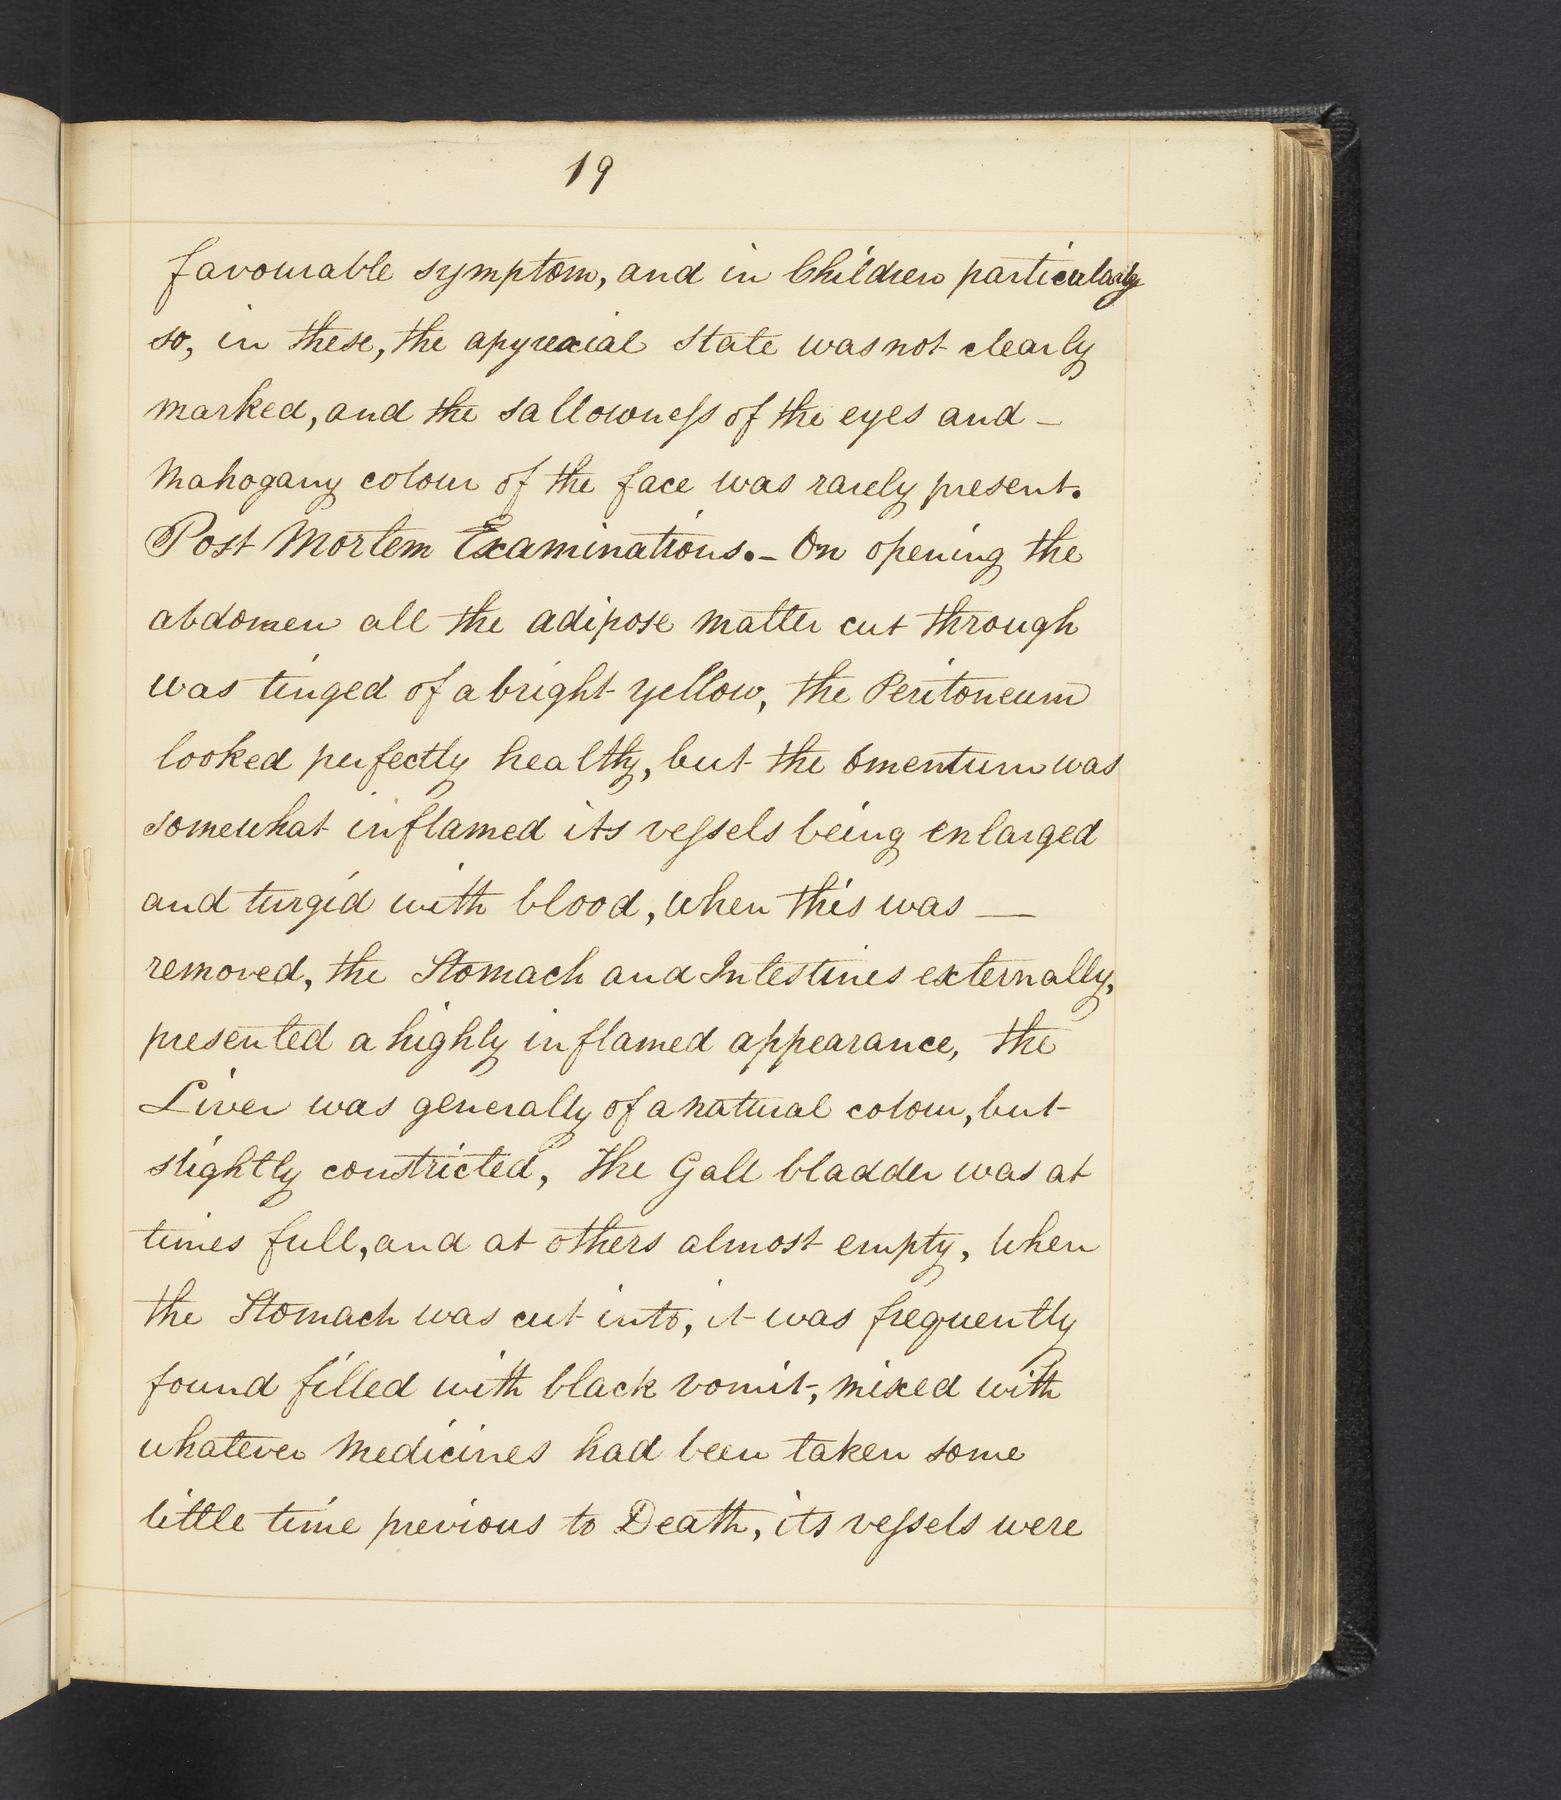 19
favourable symptom, and in Children particularly
so, in these, the apyrexial state was not clearly
marked, and the sallowneſs of the eyes and —
Mahogany colour of the face was rarely present.
Post Mortem Examinations. — On opening the
abdomen all the adipose matter cut through
was tinged of a bright yellow, the Peritoneum
looked perfectly healthy, but the Omentum was
somewhat inflamed its veſsels being enlarged
and turgid with blood, when this was —
removed, the Stomach and Intestines externally,
presented a highly inflamed appearance, the
Liver was generally of a natural colour, but
slightly constricted, the Gall bladder was at
times full, and at others almost empty, when
the Stomach was cut into, it was frequently
found filled with black vomit, mixed with
whatever Medicines had been taken some
little time previous to Death, its veſsels were